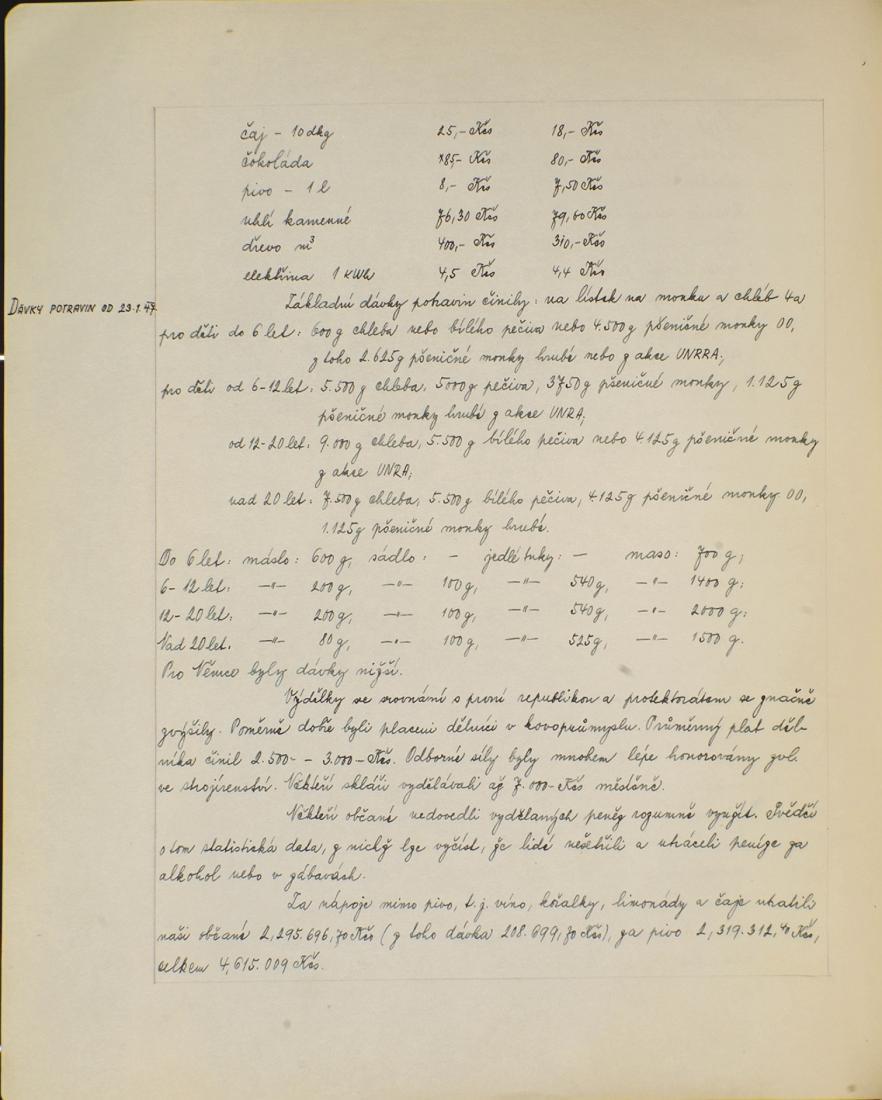 čaj - 10 dkg 25,- Kčs 18,- Kčs
čokoláda 85,- Kčs 80,- Kčs
pivo - 1 l 8,- Kčs 7,50 Kčs
uhlí kamenné 76,30 Kčs 79,60 Kčs
dřevo m³ 400,- Kčs 310,- Kčs
elektřina 1 KWh 4,5 Kčs 4,4 Kčs
DÁVKY POTRAVIN OD 23.1.47. Základní dávky potravin činily: na lístek na mouku a chléb 4a
pro děti do 6 let: 600 g chleba nebo bílého pečiva nebo 4.500 g pšeničné mouky 00,
z toho 2.625 g pšeničné mouky hrubé nebo z akce UNRRA;
pro děti od 6-12 let: 5.500 g chleba, 5000 g pečiva, 3750 g pšeničné mouky, 1.125 g
pšeničné mouky hrubé z akce UNRA;
od 12-20 let: 9.000 g chleba, 5.500 g bílého pečiva nebo 4.125 g pšeničné mouky
z akce UNRA;
nad 20 let: 7.500 g chleba, 5.500 g bílého pečiva, 4.125 g pšeničné mouky 00,
1.125 g pšeničné mouky hrubé.
Do 6 let: máslo: 600 g, sádlo: - jedlé tuky: - maso: 700 g;
6-12 let: -"- 200 g, -"- 100 g, -"- 540 g, -"- 1400 g;
12-20 let: -"- 200 g, -"- 100 g, -"- 540 g, -"- 2000 g;
Nad 20 let. -"- 80 g, -"- 100 g, -"- 525 g, -"- 1500 g.
Pro Němce byly dávky nižší.
Výdělky ve srovnání s první republikou a protektorátem se značně
zvýšily. Poměrně dobře byli placeni dělníci v kovoprůmyslu. Průměrný plat děl-
níka činil 2.500- - 3.000- Kčs. Odborné síly byly mnohem lépe honorovány zvl.
ve strojírenství. Někteří skláři vydělávali až 7.000- Kčs měsíčně.
Někteří občané nedovedli vydělaných peněz rozumně využít. Svědčí
o tom statistická data, z nichž lze vyčíst, že lidé nešetřili a utráceli peníze za
alkohol nebo v zábavách.
Za nápoje mimo pivo, t.j. víno, kořalky, limonády a čaje utratili
naši občané 2,295.696,70 Kčs (z toho dávka 208.699,70 Kčs), za pivo 2,319.312,40 Kčs,
celkem 4,615.009 Kčs.